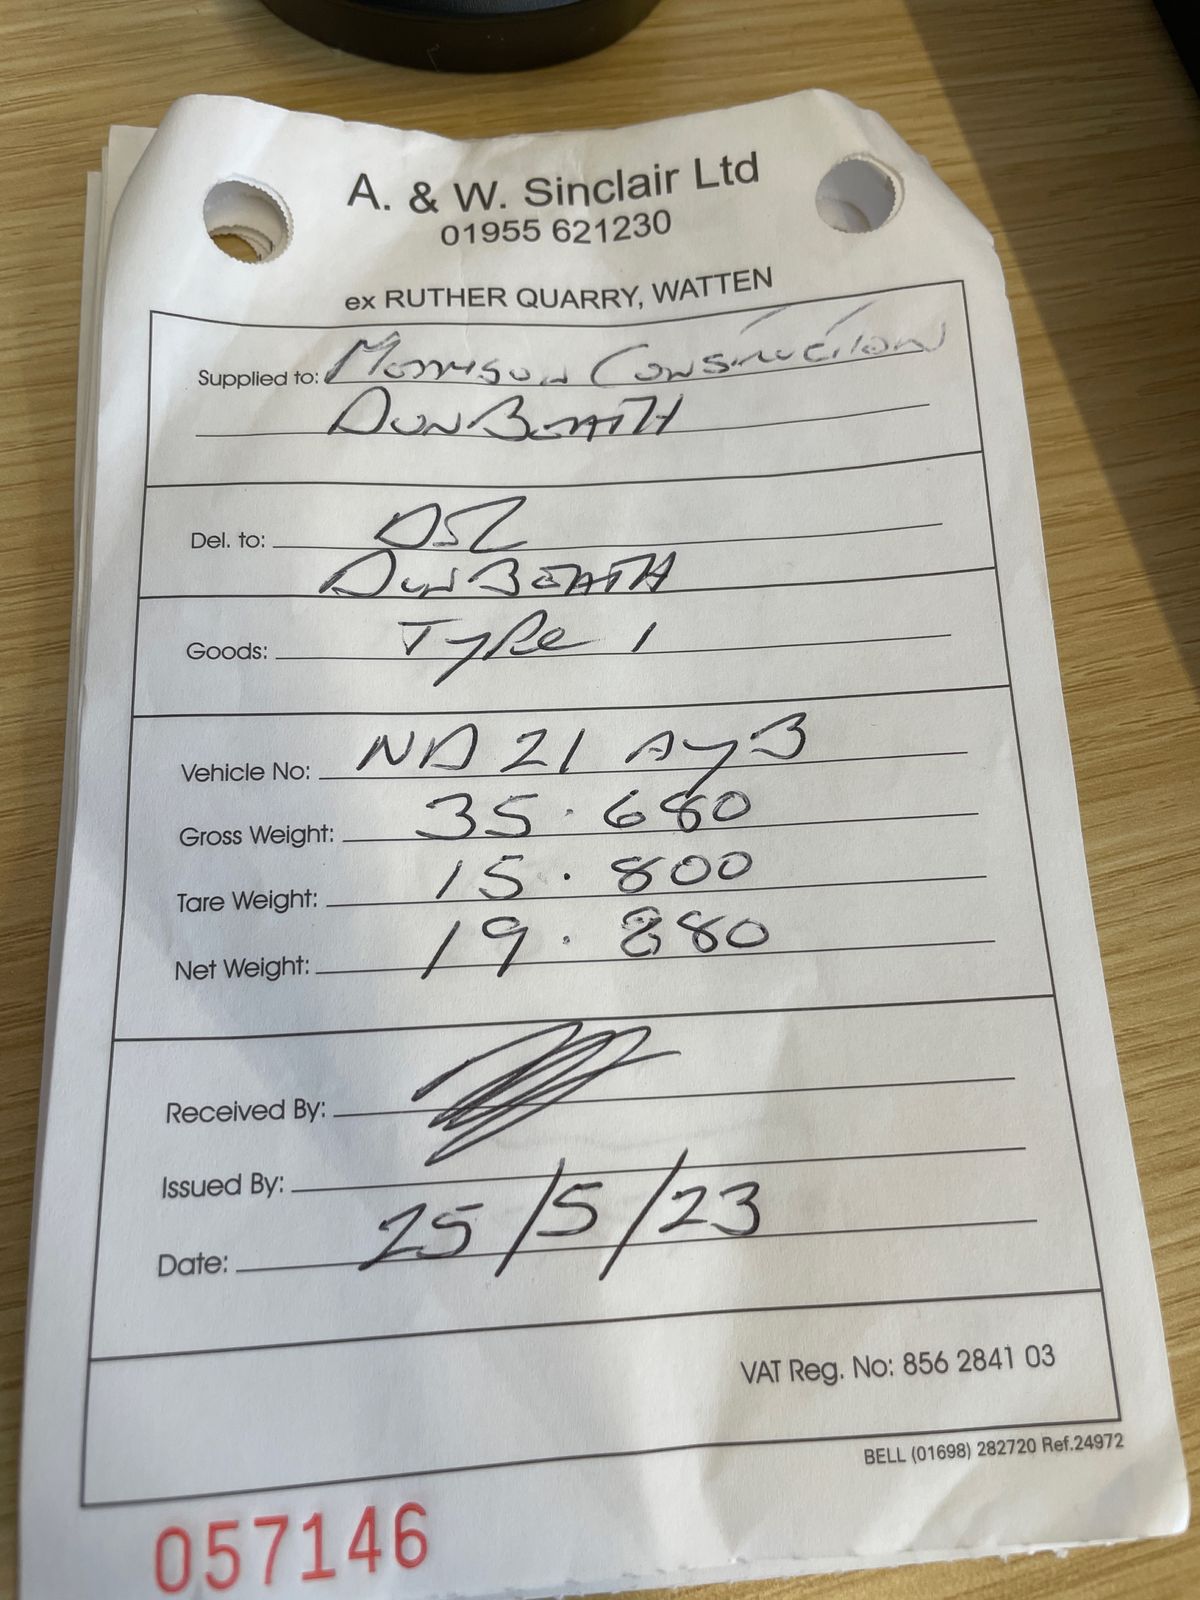 A. & W. Sinclair Ltd
01955 621230
ex RUTHER QUARRY, WATTEN
Supplied to: Morrison Construction
DunBeath
Del. to: DSL
DunBeath
Goods: Type 1
Vehicle No: ND 21 AYB
Gross Weight: 35.680
Tare Weight: 15.800
Net Weight: 19.880
Received By:
Issued By:
Date: 25/5/23
VAT Reg. No: 856 2841 03
BELL (01698) 282720 Ref.24972
057146